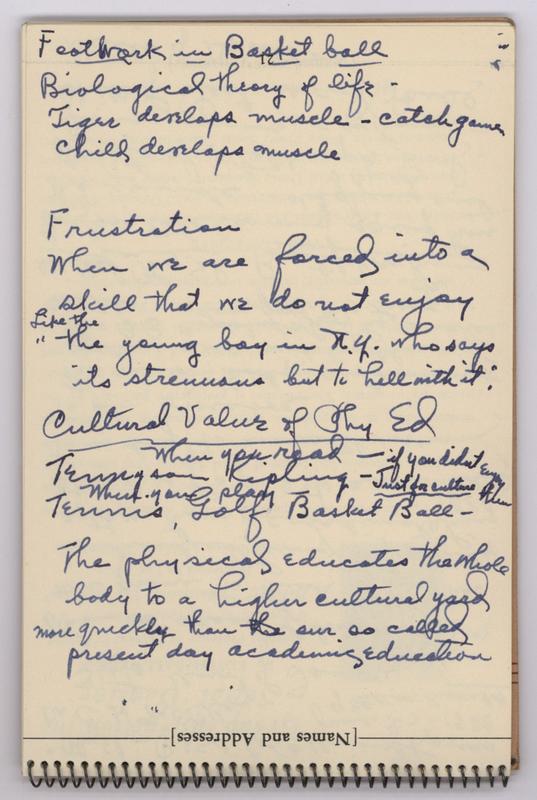 Footwork in Basket ball
Biological theory of life -
Tiger develops muscle - catch game
Child develops muscle
Frustration
When we are forced into a
skill that we do not enjoy
Like the
" the young boy in N.Y. who says
its strenuous but to hell with it".
Cultural Value of Phy Ed
When you read - if you didn't Enjoy
Tennyson Kipling - Just for culture then
When you play
Tennis, Golf Basket Ball -
The physical educates the whole
body to a higher cultural yard
more quickly than the our so called
present day academic education
[Names and Addresses]